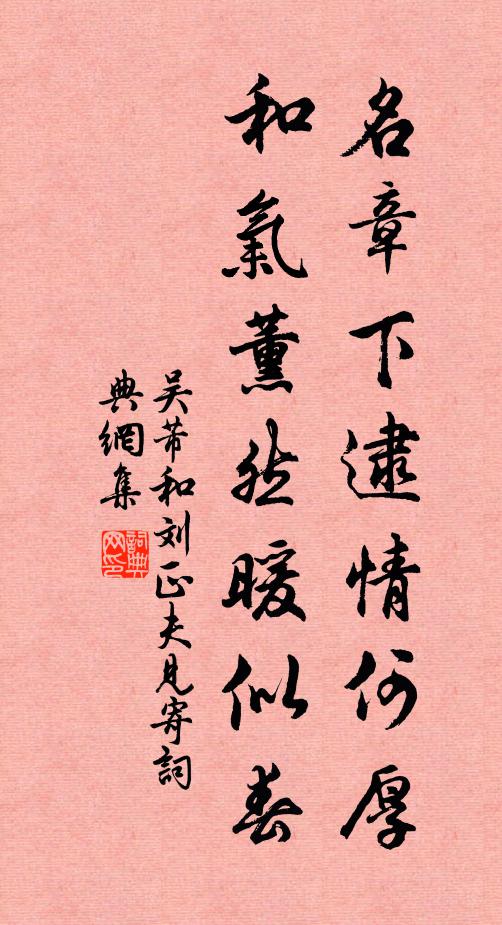 名章下逮情何厚
和氣薰然暖似春
吴芾和刘正夫見寄詞
典網集
詞典网印